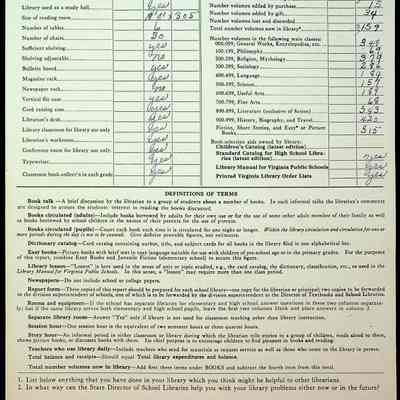 Library used as a study hall yes
Size of reading room
Number of tables 6
Number of chairs 30
Sufficient shelving yes
Shelving adjustable no
Bulletin board yes
Magazine rack yes
Newspaper rack no
Vertical file case yes
Card catalog case yes
Librarian's desk yes
Library classroom for library use only yes
Librarian's workroom yes
Conference room for library use only yes
Typewriter yes
Classroom book collec'n in each grade yes
Number volumes added by purchase 15
Number volumes added by gift 34
Number volumes lost and discarded
Total number volumes now in library*
Number volumes in the following main classes:
000-099, General Works, Encyclopedias, etc.
100-199, Philosophy
200-299, Religion, Mythology
300-399, Sociology
400-499, Language
500-599, Science
600-699, Useful Arts
700-799, Fine Arts 68
800-899, Literature (exclusive of fiction)
900-999, History, Biography, and Travel
Fiction, Short Stories, and Easy* or Picture Books 515
Book selection aids owned by library:
Children's Catalog (latest edition)
Standard Catalog for High School Libraries (latest edition) yes
Library Manual for Virginia Public Schools yes
Printed Virginia Library Order Lists yes
DEFINITIONS OF TERMS
Book talk—A brief discussion by the librarian to a group of students about a number of books. In such informal talks the librarian's comments
are designed to arouse the students' interest in reading the books discussed.
Books circulated (adults)—Include books borrowed by adults for their own use or for the use of some other adult member of their family as well
as books borrowed by school children in the names of their parents for the use of parents.
Books circulated (pupils)—Count each book each time it is circulated for one night or longer. Within the library circulation and circulation for one or
more periods during the day is not to be counted. Give definite provable figures, not estimates.
Dictionary catalog—Card catalog containing author, title, and subject cards for all books in the library filed in one alphabetical list.
Easy books—Picture books with brief text in easy language suitable for use with children of pre-school age or in the primary grades. For the purposes
of this report, combine Easy Books and Juvenile Fiction (elementary school) to secure this figure.
Library lesson—"Lesson" is here used in the sense of unit or topic studied, e.g., the card catalog, the dictionary, classification, etc., as used in the
Library Manual for Virginia Public Schools. In this sense, a "lesson" may require more than one class period.
Newspapers—Do not include school or college papers.
Report form—Three copies of this report should be prepared for each school library—one copy for the librarian or principal; two copies to be forwarded
to the division superintendent of schools, one of which is to be forwarded by the division superintendent to the Director of Textbooks and School Libraries.
Rooms and equipment—If the school has separate libraries for elementary and high school answer questions in these two columns separate-
ly; but if the same library serves both elementary and high school pupils, leave the first two columns blank and place answers in column 3.
Separate library room—Answer "Yes" only if library is not used for classroom teaching other than library instruction.
Session hour—One session hour is the equivalent of two semester hours or three quarter hours.
Story hour—An informal period in either classroom or library during which the librarian tells stories to a group of children, reads aloud to them,
shows picture books, or discusses books with them. Its chief purpose is to encourage children to find pleasure in books and reading.
Teachers who use library daily—Include teachers who send for materials or request service as well as those who come to the library in person.
Total balance and receipts—Should equal Total library expenditures and balance.
Total number volumes now in library—Add first three items under BOOKS and subtract the fourth item from this total.
1. List below anything that you have done in your library which you think might be helpful to other librarians.
2. In what way can the State Director of School Libraries help you with your library problems either now or in the future?